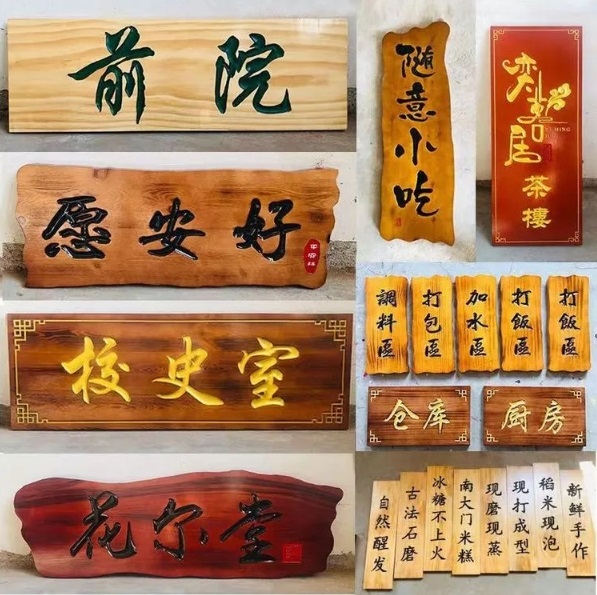 前院
愿安好
校史室
花尔堂
随意小吃
嘉
居
MING
茶樓
調料區
打包區
加水區
打飯區
打飯區
仓库
厨房
自然醒发
古法石磨
冰糖不上火
南大门米糕
现磨现蒸
现打成型
稻米现泡
新鲜手作